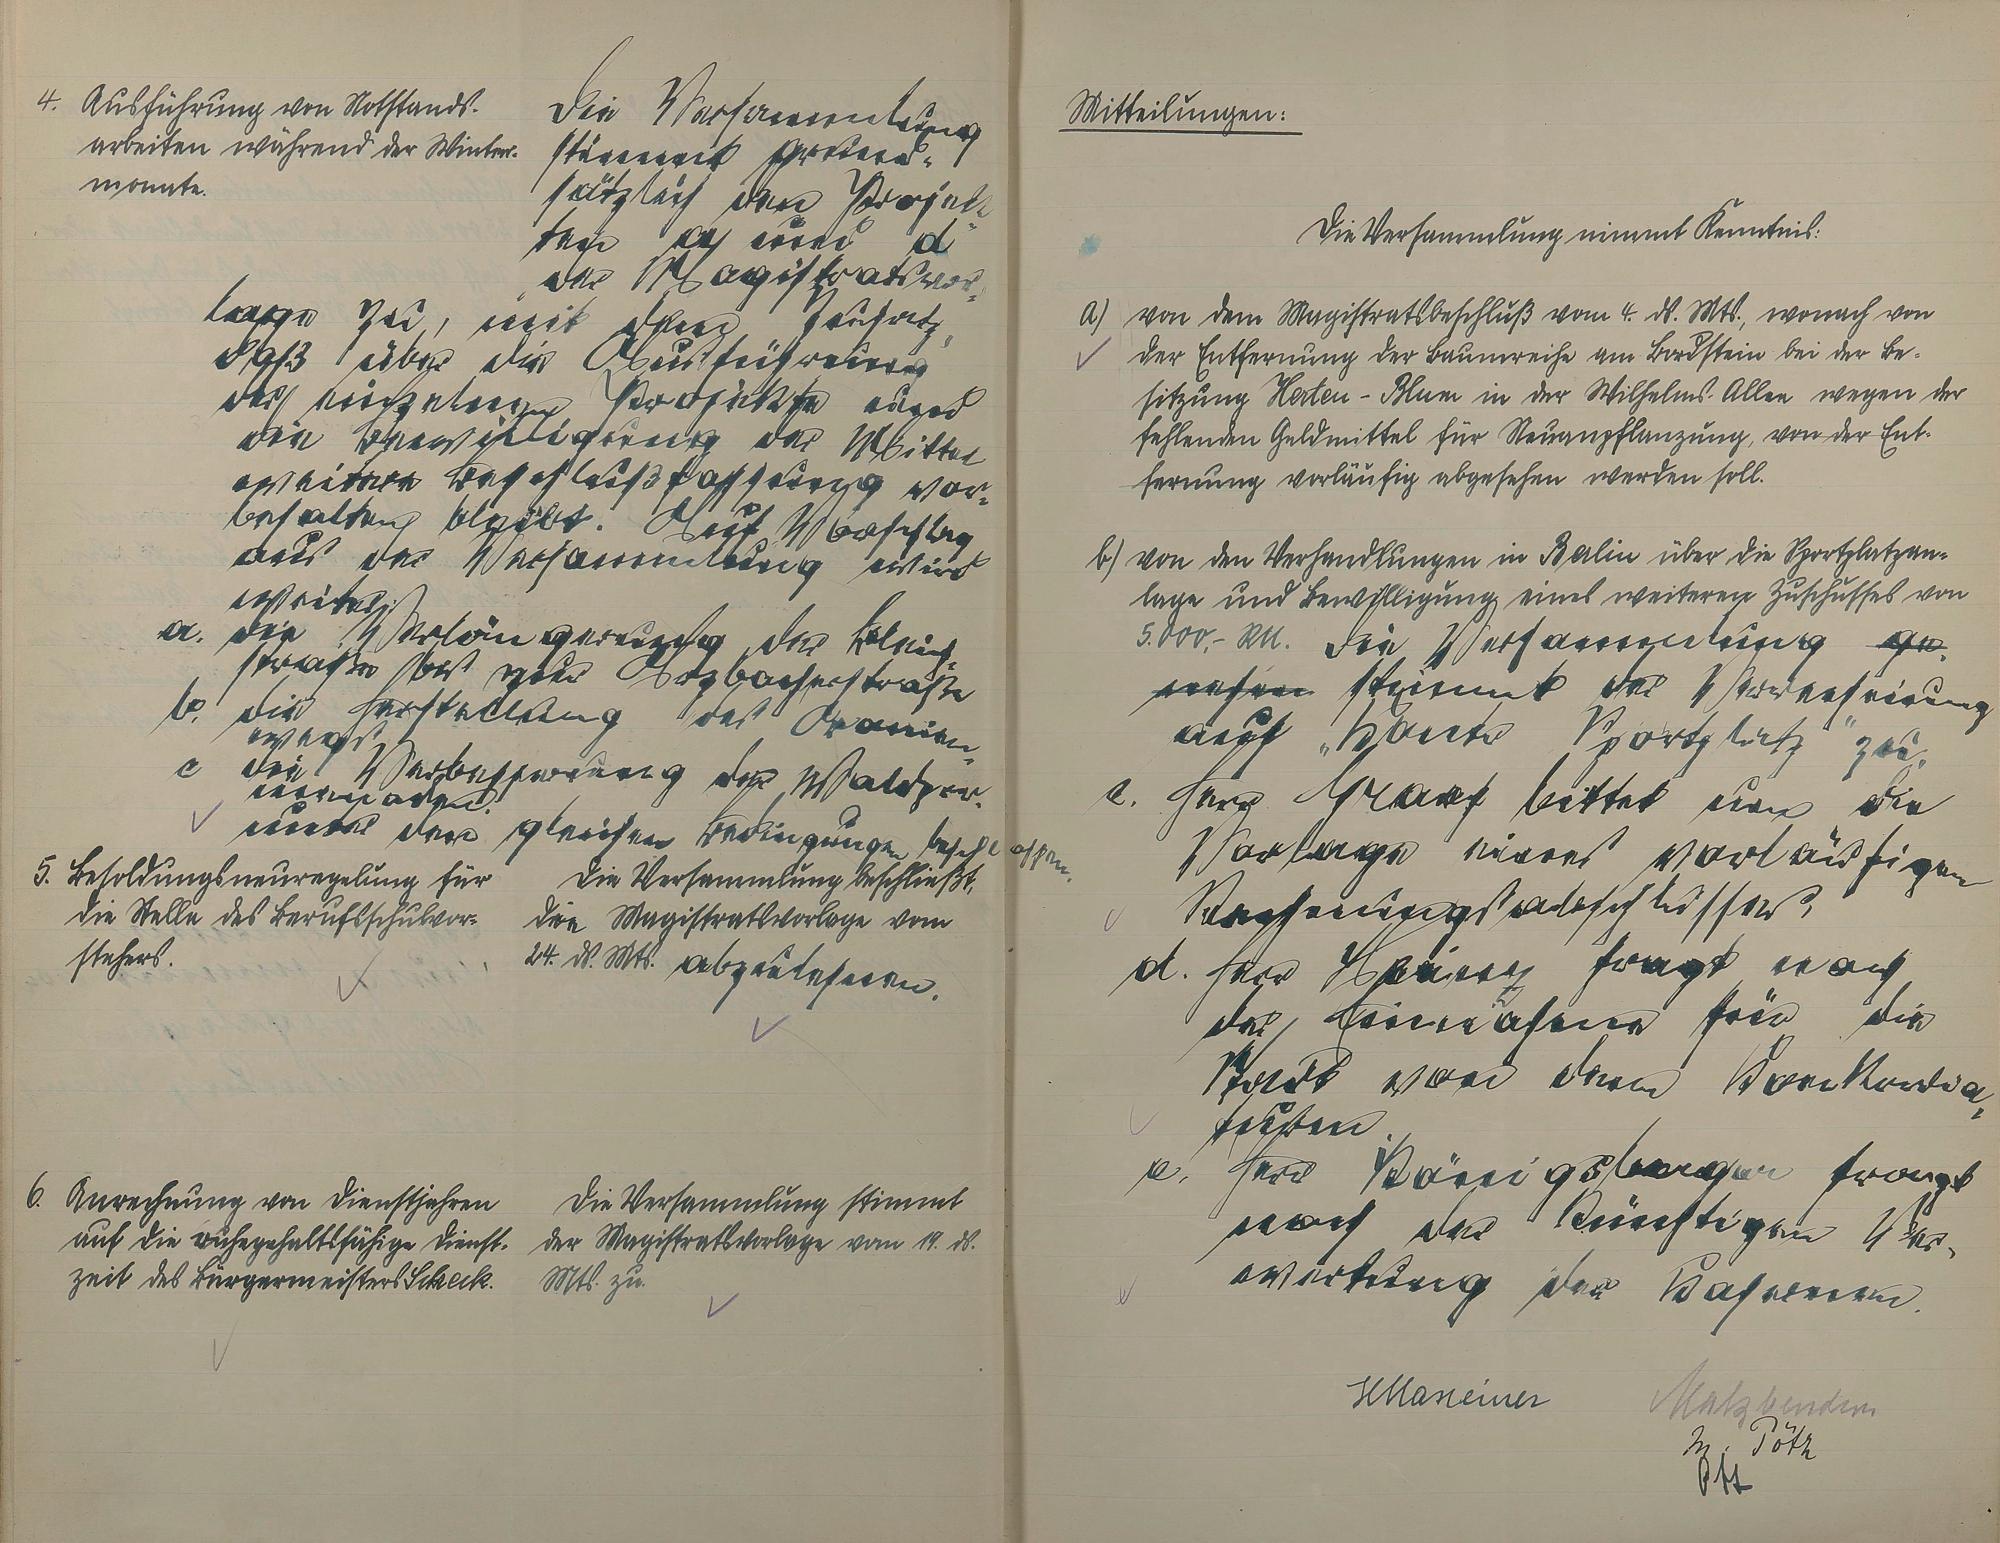 4. Ausführung von Notstands-
arbeiten während der Winter-
monate.
Die Versammlung
stimmt grund-
sätzlich den Projek-
ten a) und d
der Magistratsvor-
lage zu, mit dem Zusatz,
daß über die Ausführung
der einzelnen Projekte und
die Bewilligung der Mittel
weitere Beschlußfassung vor-
behalten bleibt. Auf Vorschlag
aus der Versammlung wird
weiter
a. die Verlängerung der Bleich-
straße bis zur Limbacherstraße
b. die Herstellung des Oranien-
wegs
c die Verbesserung der Waldpro-
menaden
unter den gleichen Bedingungen beschlossen.
5. Besoldungsneuregelung für
die Stelle des Berufsschulvor-
stehers.
Die Versammlung beschließt,
die Magistratsvorlage vom
24. ds. Mts. abzulehnen.
6. Anrechnung von Dienstjahren
auf die ruhegehaltsfähige Dienst-
zeit des Bürgermeisters Scheck.
Die Versammlung stimmt
der Magistratsvorlage vom 19. ds.
Mts. zu.
Mitteilungen:
Die Versammlung nimmt Kenntnis:
a) von dem Magistratsbeschluß vom 4. ds. Mts., wonach von
der Entfernung der Baumreihe am Bordstein bei der Be-
sitzung Herten-Blum in der Wilhelms-Allee wegen der
fehlenden Geldmittel für Neuanpflanzung, von der Ent-
fernung vorläufig abgesehen werden soll.
b) von den Verhandlungen in Berlin über die Sportplatzan-
lage und Bewilligung eines weiteren Zuschusses von
5.000,- RM. Die Versammlung ge-
nehm stimmt der
auf " Sportplatz" zu.
c. Herr Graef bittet um die
Vorlage eines vorläufigen
Rechnungsabschlusses.
d. Herr Heinz fragt nach
der Einnahme für die
Stadt von dem Konkordia-
e. Herr Königsberger fragt
nach der künftigen Ver-
wertung der Kasernen.
Matzbender
Pötz
Ott